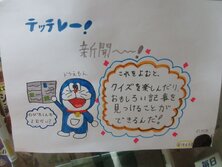 テッテレー!
新聞〜〜!
ドラえもん
これをよむと、
クイズを楽しんだり
おもしろい記事を
見つけることが
できるんだ!